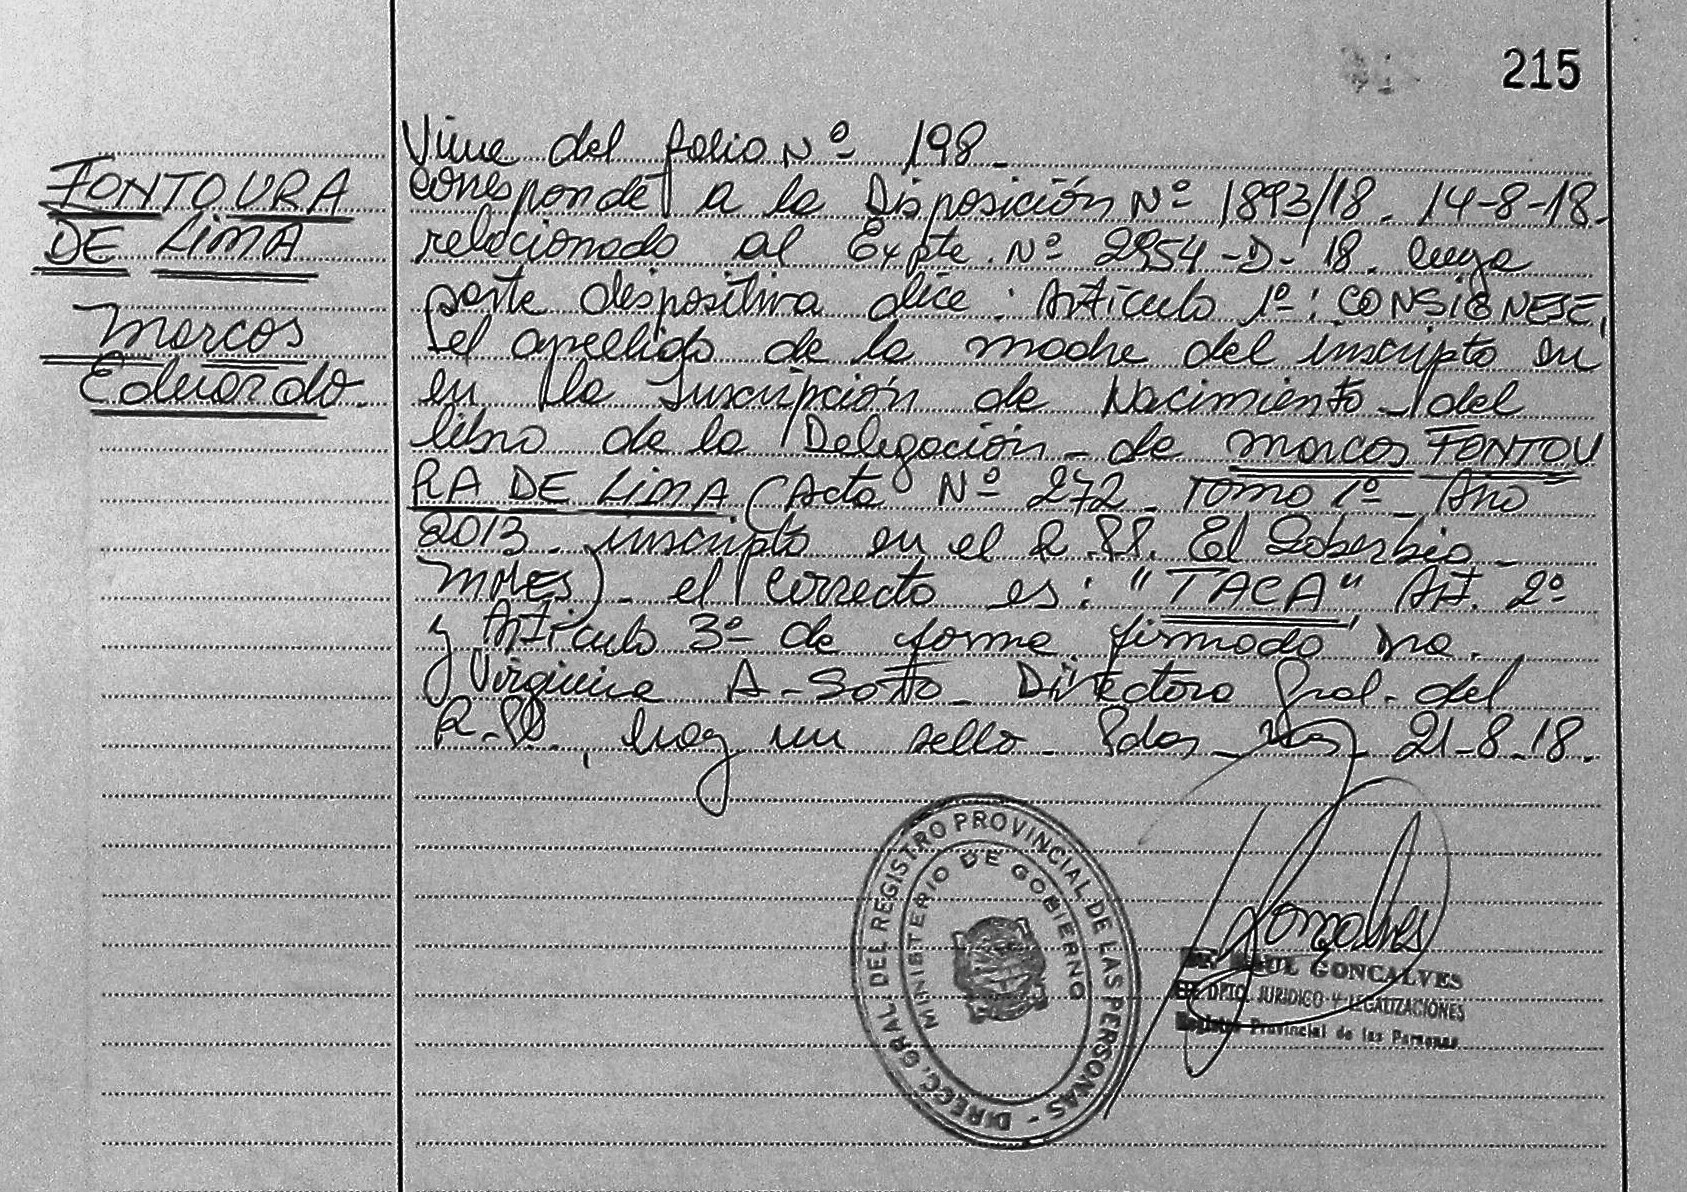 215
FONTOURA
DE LIMA
Marcos
Eduardo.
Viene del folio Nº 198_
corresponde a la Disposición Nº 1893/18. 14-8-18.
relacionado al Expte. Nº 2954-D-18. cuya
parte dispositiva dice: Artículo 1º: CONSIGNESE,
el apellido de la madre del inscripto en
en la Inscripción de Nacimiento_ del
libro de la Delegación_ de Marcos FONTOU
RA DE LIMA (Acta Nº 272_ Tomo 1º_ Año
2013. inscripto en el R.PP. El Soberbio_
MNES)_ el correcto es: "TACA" Art. 2º
y Artículo 3º de forma firmado Dra.
Virginia A-Sotto_ Directora Gral. del
R.PP., hay un sello_ Pdas_ Mns_ 21-8-18.
DIRECC. GRAL. DEL REGISTRO PROVINCIAL DE LAS PERSONAS -
MINISTERIO DE GOBIERNO
Gonçalves
RAUL GONCALVES
DPTO. JURIDICO Y LEGALIZACIONES
Registro Provincial de las Personas